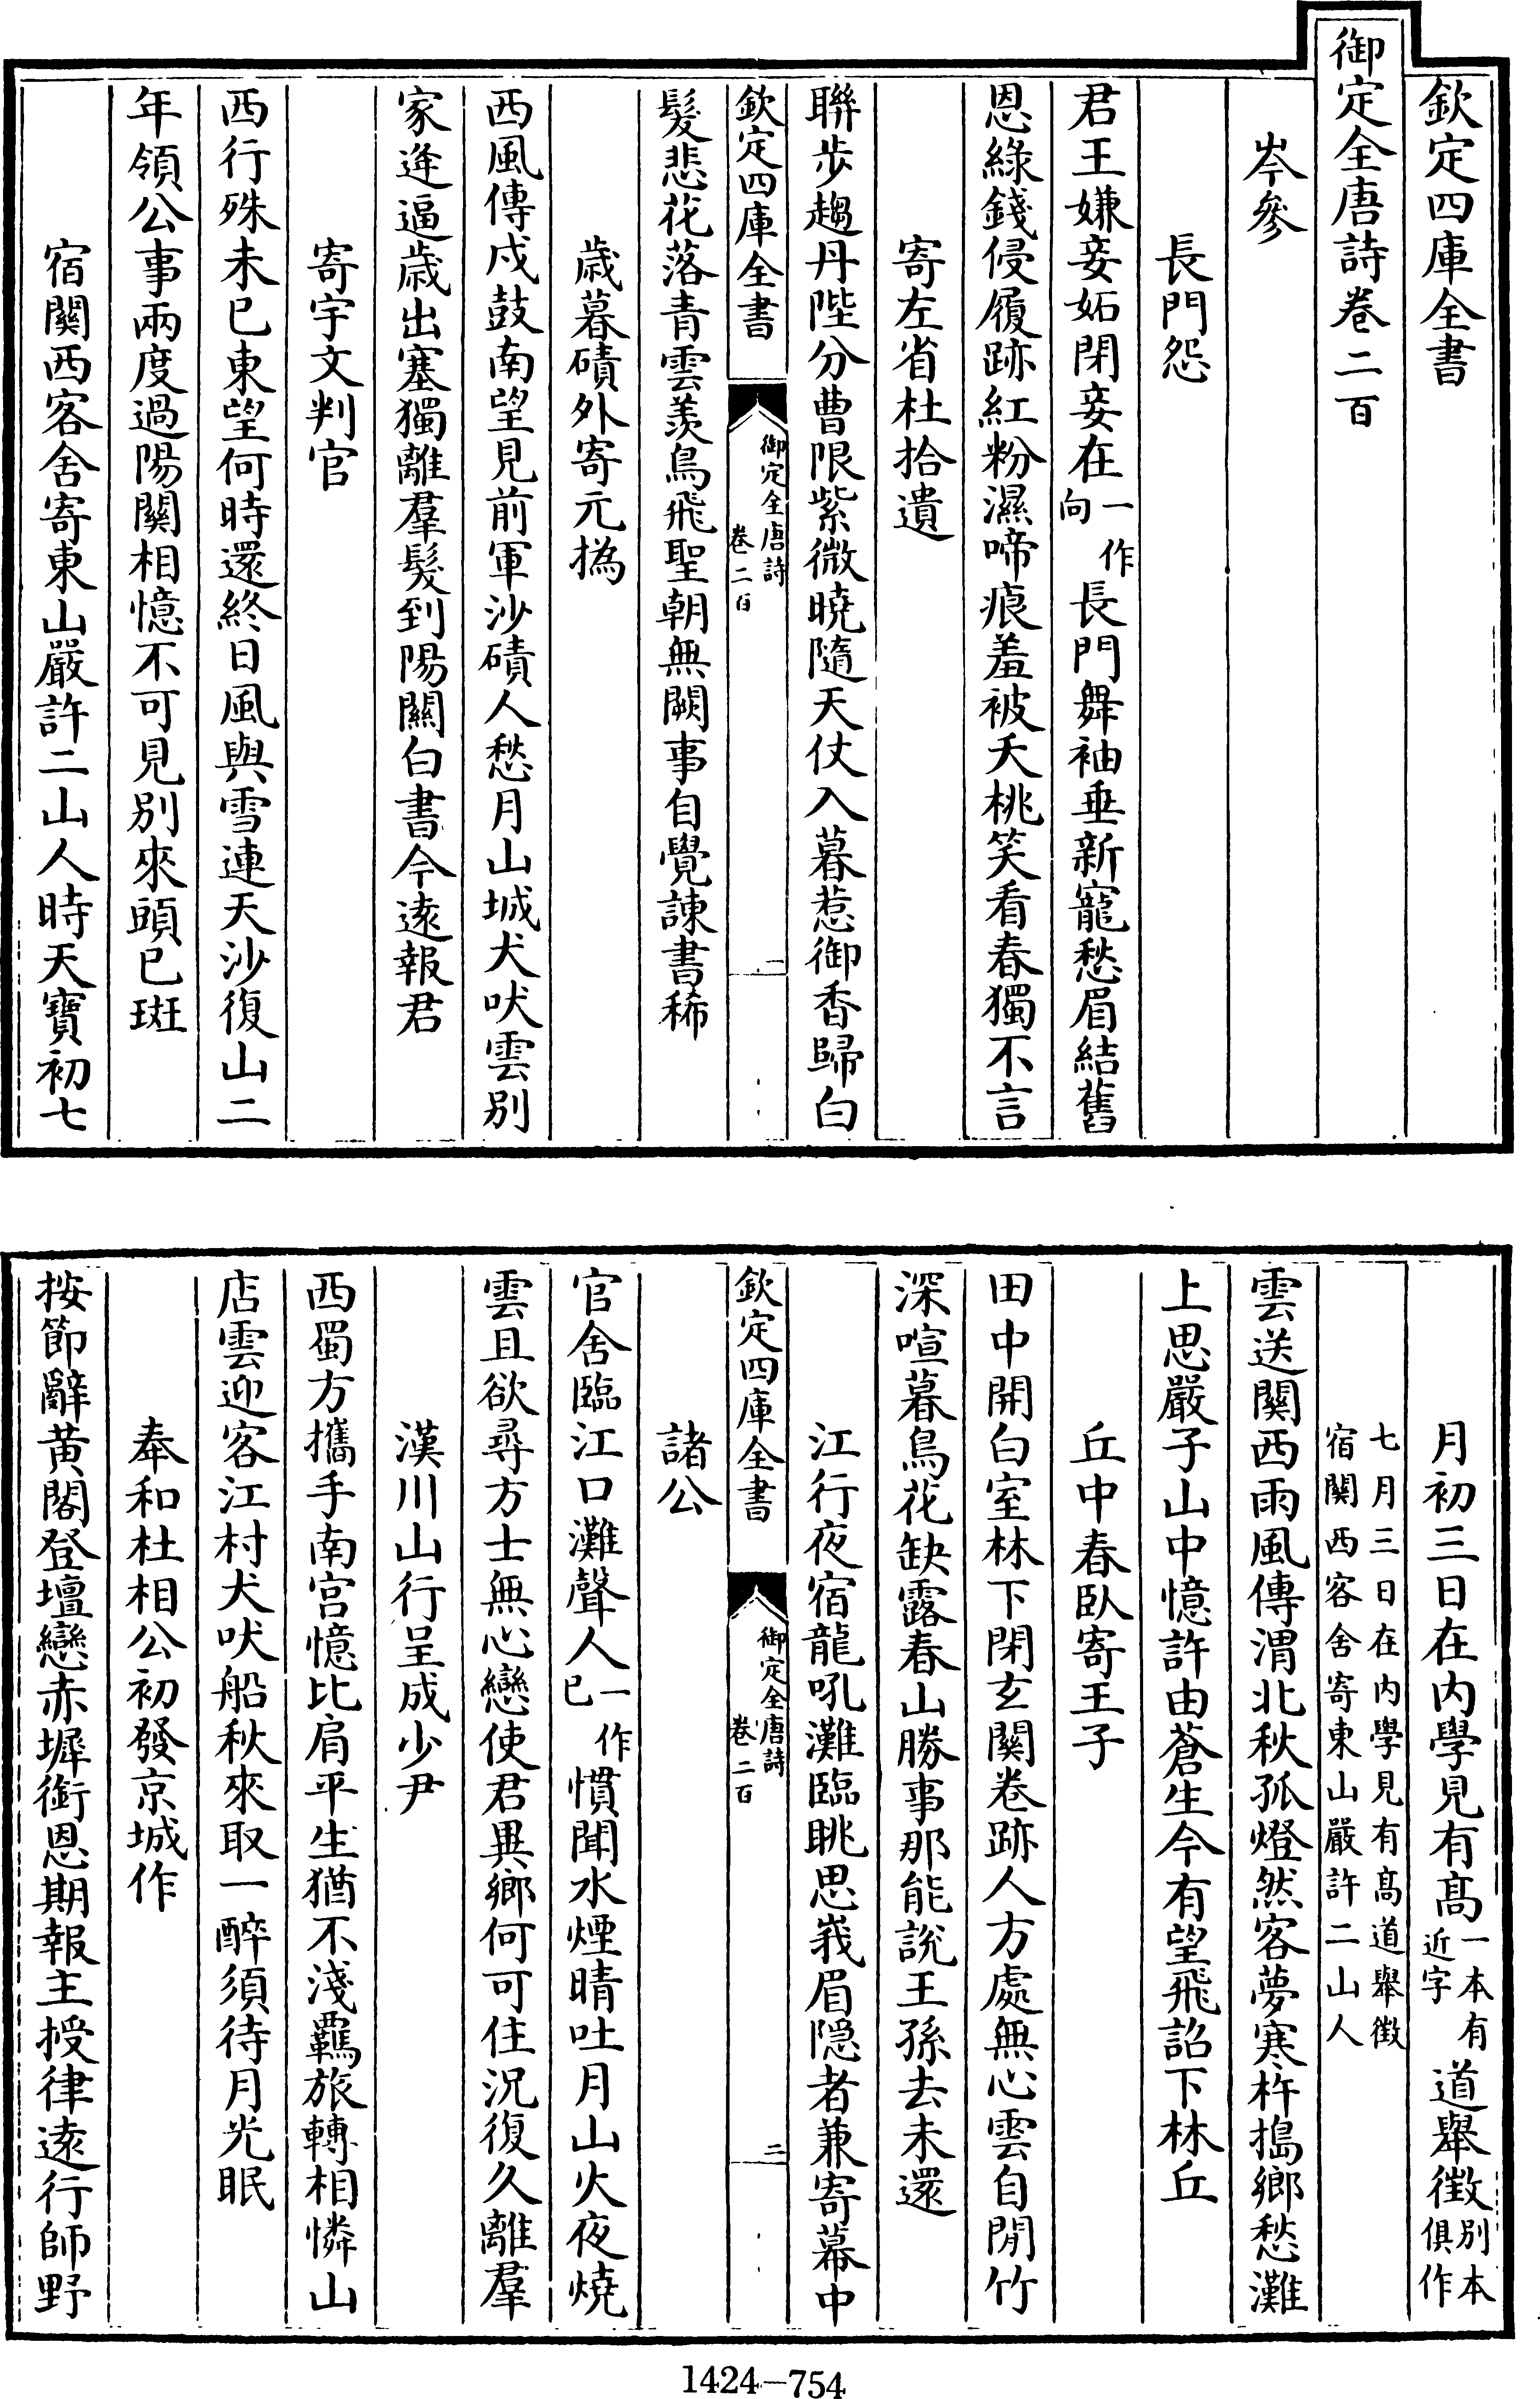 欽定四庫全書
御定全唐詩卷二百
岑參
長門怨
君王嫌妾妬閉妾在一作向長門舞袖垂新寵愁眉結舊
恩綠錢侵履跡紅粉濕啼痕羞被夭桃笑看春獨不言
寄左省杜拾遺
聯步趨丹陛分曹限紫微曉隨天仗入暮惹御香歸白
欽定四庫全書
御定全唐詩
卷二百
一
髮悲花落青雲羨鳥飛聖朝無闕事自覺諫書稀
歲暮磧外寄元撝
西風傳戍鼓南望見前軍沙磧人愁月山城犬吠雲別
家逢逼歲出塞獨離羣髮到陽關白書今遠報君
寄宇文判官
西行殊未已東望何時還終日風與雪連天沙復山二
年領公事兩度過陽關相憶不可見別來頭已斑
宿關西客舍寄東山嚴許二山人時天寶初七
月初三日在内學見有髙一本有近字道舉徵別本俱作
七月三日在内學見有髙道舉徵
宿關西客舍寄東山嚴許二山人
雲送關西雨風傳渭北秋孤燈然客夢寒杵搗鄉愁灘
上思嚴子山中憶許由蒼生今有望飛詔下林丘
丘中春臥寄王子
田中開白室林下閉玄關卷跡人方處無心雲自閒竹
深喧暮鳥花缺露春山勝事那能說王孫去未還
江行夜宿龍吼灘臨眺思峩眉隠者兼寄幕中
欽定四庫全書
御定全唐詩
卷二百
二
諸公
官舍臨江口灘聲人一作已慣聞水煙晴吐月山火夜燒
雲且欲尋方士無心戀使君異鄉何可住況復久離羣
漢川山行呈成少尹
西蜀方攜手南宮憶比肩平生猶不淺羈旅轉相憐山
店雲迎客江村犬吠船秋來取一醉須待月光眠
奉和杜相公初發京城作
按節辭黄閣登壇戀赤墀銜恩期報主授律遠行師野
1424—754